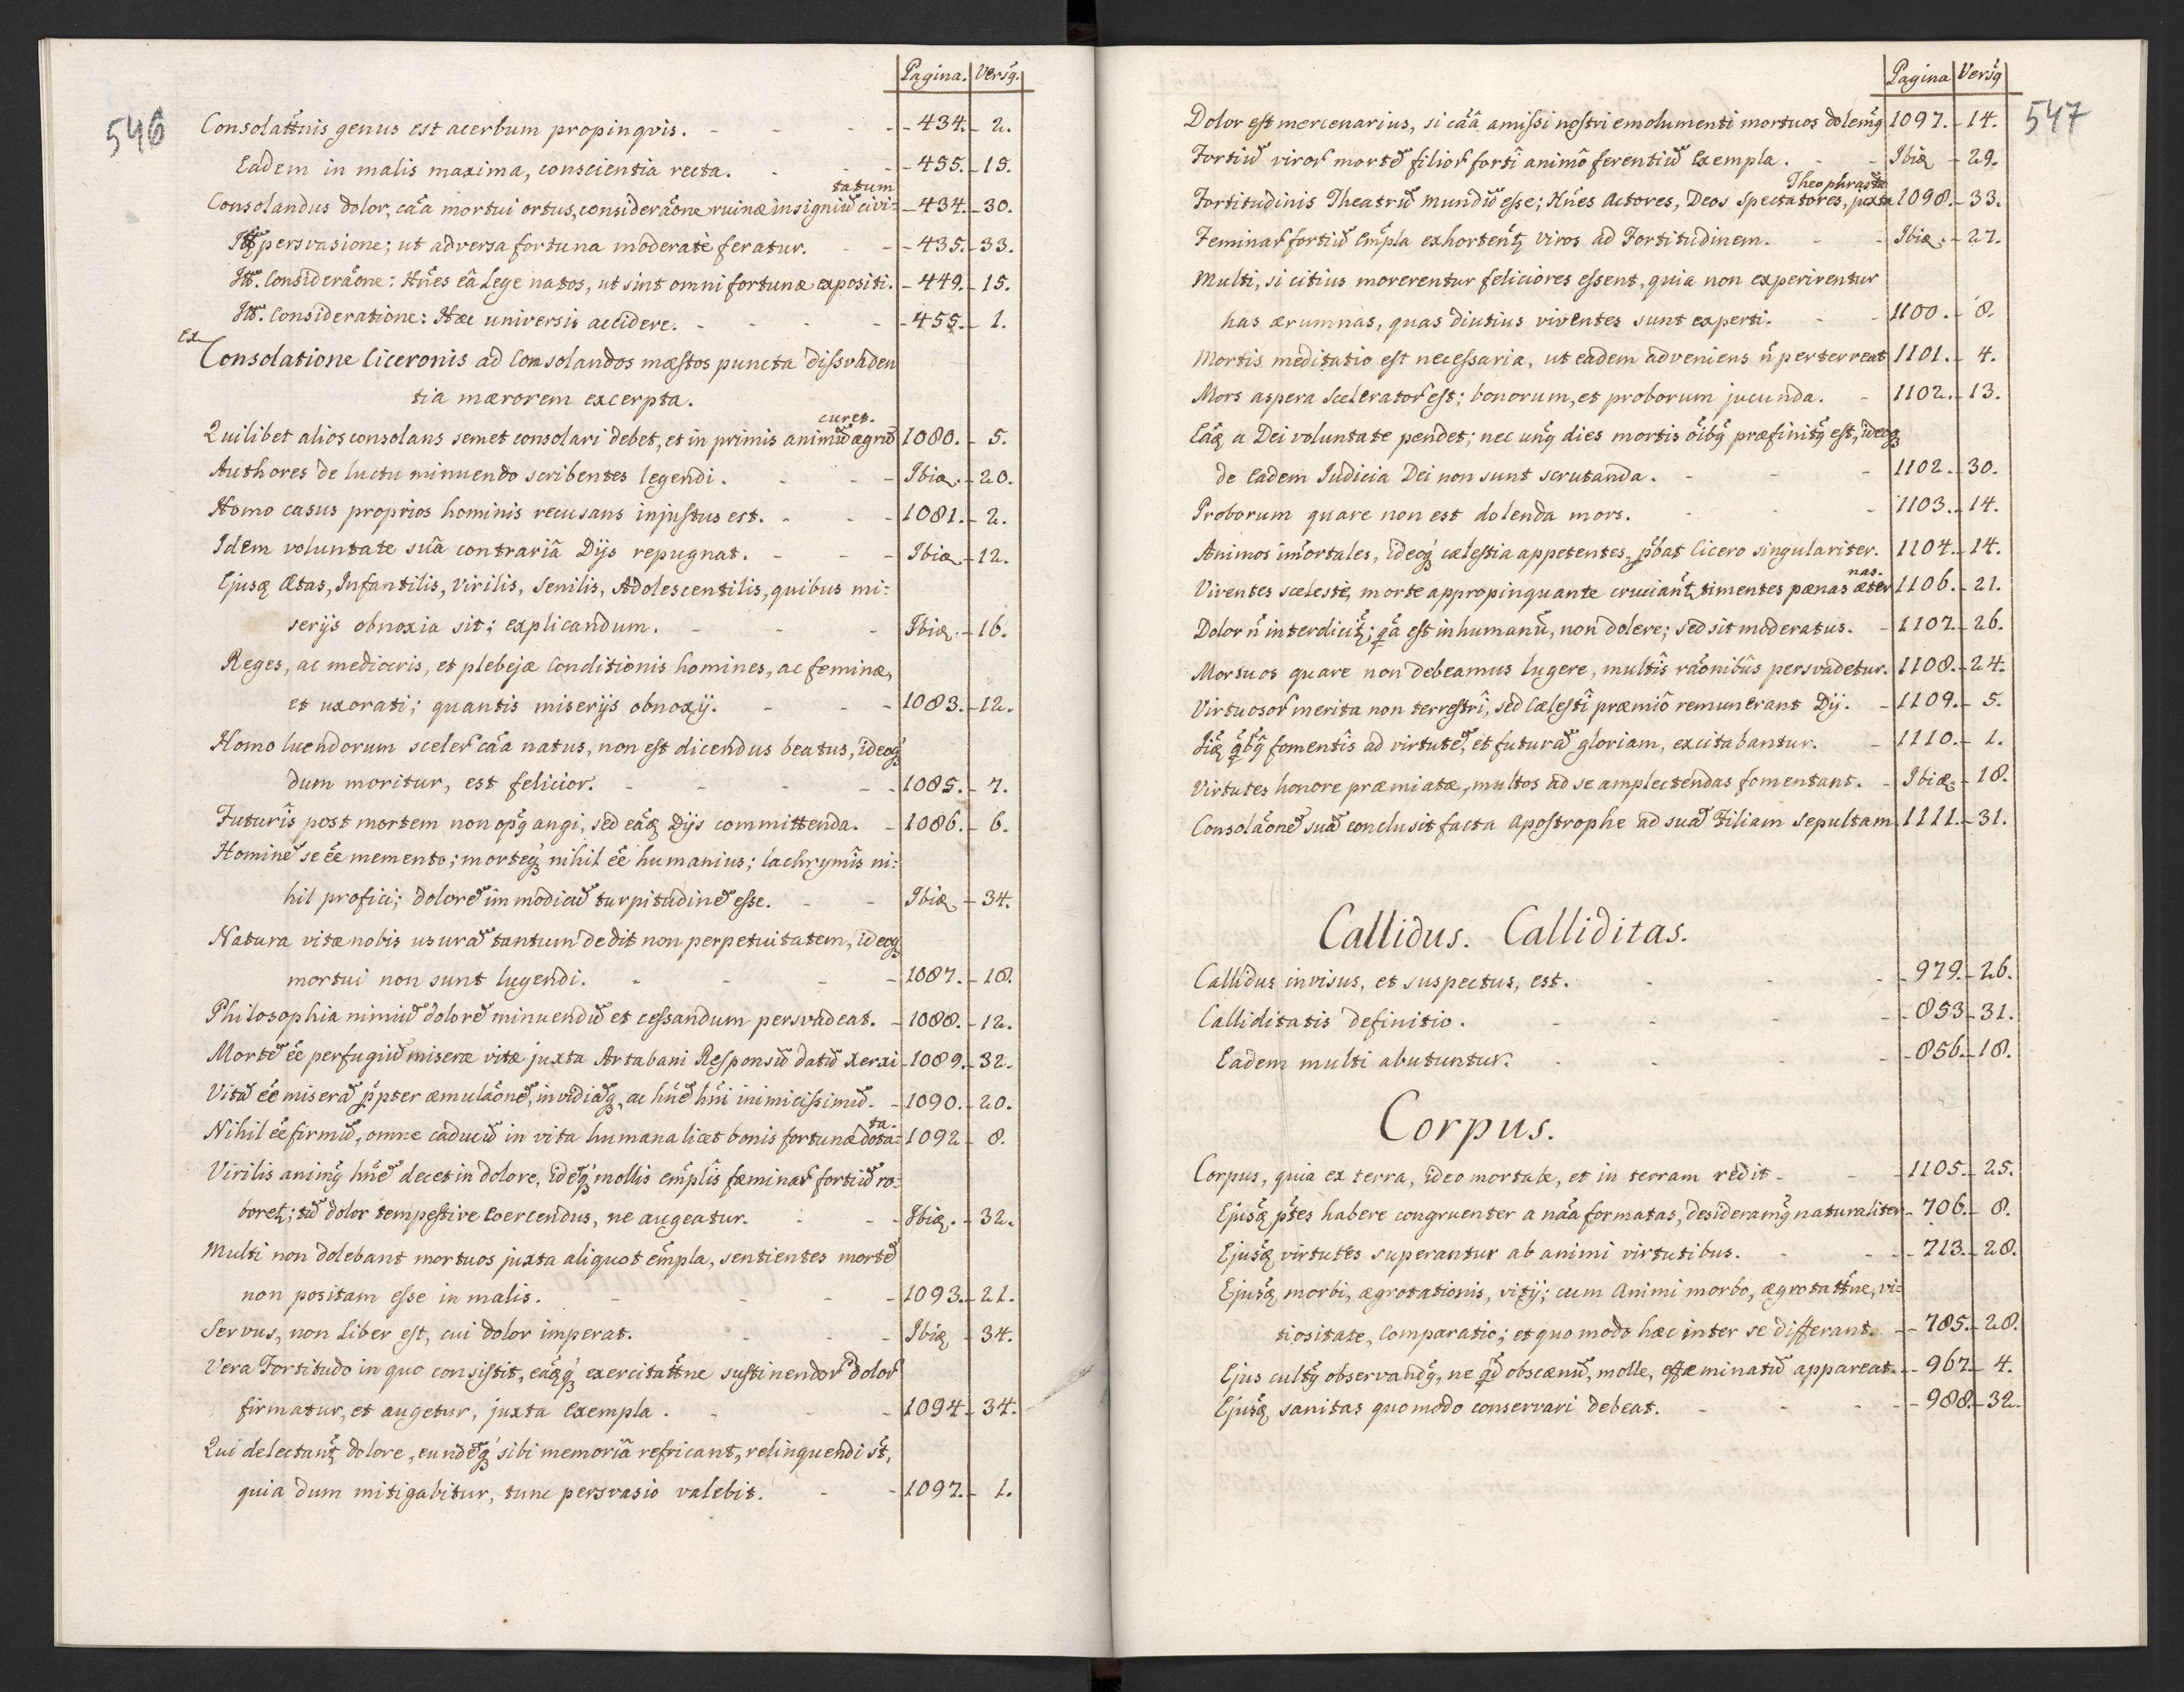 546
Pagina. Versq.
Consolattnis genus est acerbum propinqvis. - 434. - 2.
Eadem in malis maxima, conscientia recta. - 455. - 15.
tatum
Consolandus dolor, caa mortui ortus, consideraone ruinæ insigniu civi- - 434. - 30.
Itt persvasione; ut adversa fortuna moderatè feratur. - 435. - 33.
Itt. Consideraone: Hnes eâ Lege natos, ut sint omni fortunæ expositi. - 449. - 15.
Itt. Consideratione: Hæc universis accidere. - 455. - 1.
Ex
Consolatione Ciceronis ad Consolandos mæstos puncta dissvaden
tia mærorem excerpta.
curet.
Quilibet alios consolans semet consolari debet, et in primis animu ægru 1080. - 5.
Authores de luctu minuendo scribentes legendi. - Ibid. - 20.
Homo casus proprios hominis recusans injustus est. - 1081. - 2.
Idem voluntate suâ contrariâ Dijs repugnat. - Ibid. - 12.
Ejusq Ætas, Infantilis, Virilis, Senilis, Adolescentilis, quibus mi:
serijs obnoxia sit; explicandum. - Ibid. - 16.
Reges, ac mediocris, et plebejæ Conditionis homines, ac feminæ,
et uxorati; quantis miserijs obnoxij. - 1083. - 12.
Homo luendorum sceler caa natus, non est dicendus beatus, ideoq
dum moritur, est felicior. - 1085. - 7.
Futuris post mortem non opq angi, sed eaq Dijs committenda. - 1086. - 6.
Homine se ee memento; morteq nihil ee humanius; lachrymis ni:
hil profici; dolore immodicu turpitudine esse. - Ibid - 34.
Natura vitæ nobis usura tantum dedit non perpetuitatem, ideoq
mortui non sunt lugendi. - 1087. - 18.
Philosophia nimiu dolore minuendu et cessandum persvadeat. - 1088. - 12.
Morte ee perfugiu miseræ vitæ juxta Artabani Responsu datu Xerxi - 1089. - 32.
Vita ee misera ppter æmulaone, invidiaq, ac hne hni inimicissimu. - 1090. - 20.
ta.
Nihil ee firmu, omne caducu in vita humana licet bonis fortunæ dota: 1092 - 8.
Virilis animq hne decet in dolore, ideoq mollis emplis fæminar fortiu ro:
boret; tu dolor tempestive coercendus, ne augeatur. - Ibid. - 32.
Multi non dolebant mortuos juxta aliquot empla, sentientes morte
non positam esse in malis. - 1093. - 21.
Servus, non Liber est, cui dolor imperat. - Ibid - 34.
Vera Fortitudo in quo consistit, eaqq exercitattne sustinendor dolor
firmatur, et augetur, juxta Exempla. - 1094 - 34.
Qui delectant dolore, eundeq sibi memoriâ refricant, relinquendi st,
quia dum mitigabitur, tunc persvasio valebit. - 1097. - 1.
547
Pagina Versq
Dolor est mercenarius, si caâ amissi nostri emolumenti mortuos dolemq 1097. - 14.
Fortiu viror morte filior forti animô ferentiu Exempla. - Ibid - 29.
Theophrastu
Fortitudinis Theatru mundu esse; Hnes Actores, Deos Spectatores, juxta 1098. - 33.
Feminar fortiu Empla exhortent viros ad Fortitudinem. - Ibid. - 27.
Multi, si citius morerentur feliciores essent, quia non experirentur
has ærumnas, quas diutius viventes sunt experti. - 1100. - 8.
Mortis meditatio est necessaria, ut eadem adveniens n perterreat 1101. - 4.
Mors aspera Scelerator est; bonorum, et proborum jucunda. - 1102. - 13.
Eaq a Dei voluntate pendet; nec unq dies mortis oibq præfinitq est, ideoq
de Eadem Iudicia Dei non sunt scrutanda. - 1102. - 30.
Proborum quare non est dolenda mors. - 1103. - 14.
Animos imortales, ideoq cælestia appetentes, pbat Cicero singulariter. 1104. - 14.
nas.
Viventes scelestè, morte appropinquante cruciant, timentes pænas æter 1106. - 21.
Dolor n interdicit; qa est inhumanu, non dolere; sed sit moderatus. - 1107. - 26.
Mortuos quare non debeamus lugere, multis raonibus persvadetur. 1108. - 24.
Virtuosor merita non terrestri, sed Cælesti præmiô remunerant Dij. - 1109. - 5.
Iiq qbq fomentis ad virtute, et futura gloriam, excitabantur. - 1110. - 1.
Virtutes honore præmiatæ, multos ad se amplectendas fomentant. - Ibid. - 18.
Consolaone sua conclusit facta Apostrophe ad sua Filiam Sepultam 1111. - 31.
Callidus. Calliditas.
Callidus invisus, et suspectus, est. - 979. - 26.
Calliditatis definitio. - 853 - 31.
Eadem multi abutuntur. - 856. - 18.
Corpus.
Corpus, quia ex terra, ideo mortale, et in terram redit - 1105. - 25.
Ejusq ptes habere congruenter a naa formatas, desideramq naturaliter - 706. - 8.
Ejusq virtutes superantur ab animi virtutibus. - 713. - 28.
Ejusq morbi, ægrotationis, vitij; cum Animi morbo, ægrotattne, vi:
tiositate, Comparatio; et quo modo hæc inter se differant. - 785. - 28.
Ejus cultq observandq, ne qd obscænu, molle, effæminatu appareat. - 967. - 4.
Ejusq sanitas quo modo conservari debeat. - 988. - 32.